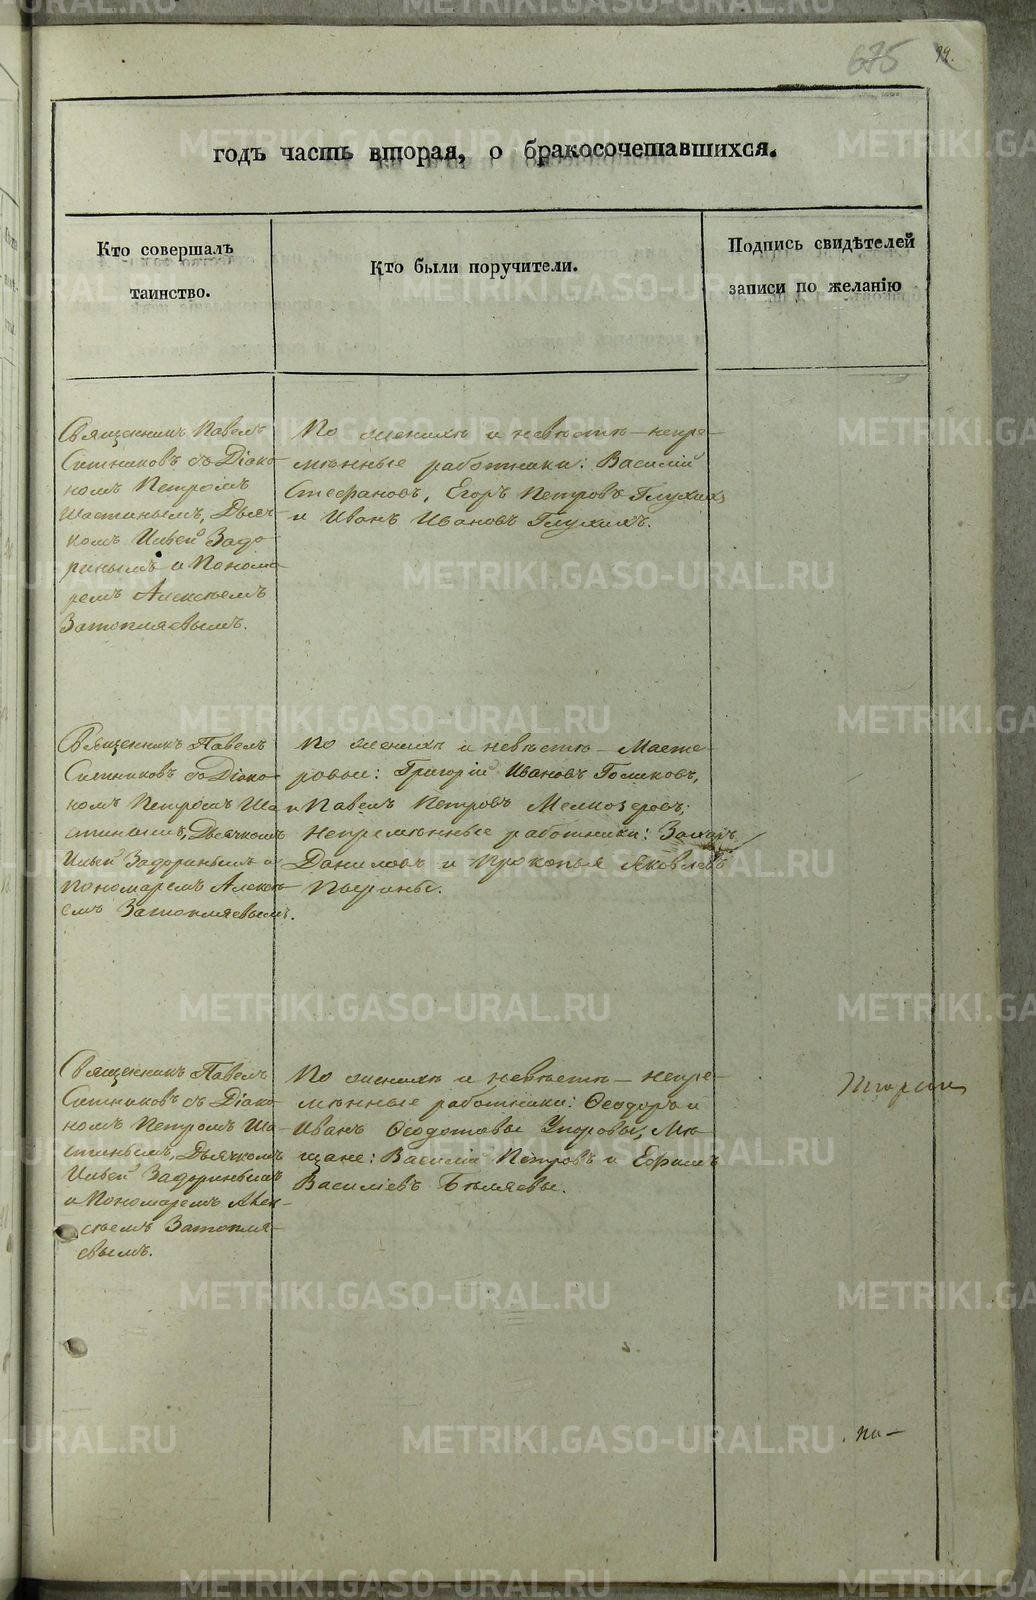 675
годъ часть вторая, о бракосочетавшихся.
Кто совершалъ
таинство.
Кто были поручители.
Подпись свидѣтелей
записи по желанію
Священникъ Павелъ
Ситниковъ съ Діако-
номъ Петромъ
Шастинымъ, Дьяч-
комъ Ильей Задо-
ринымъ и Понома-
ремъ Алексѣемъ
Затопляевымъ.
По женихѣ и невѣстѣ – непре-
мѣнные работники: Василій
Стефановъ, Егоръ Петровъ Глухихъ
и Иванъ Ивановъ Глухихъ.
Священникъ Павелъ
Ситниковъ съ Діако-
номъ Петромъ Ша-
стинымъ, Дьячкомъ
Ильей Задоринымъ и
пономаремъ Алексѣ-
емъ Затопляевымъ.
По женихѣ и невѣстѣ – Масте-
ровые: Григорій Ивановъ Голиковъ,
и Павелъ Петровъ Мелкозеровъ;
Непремѣнные работники: Захаръ
Даниловъ и Прокопья Яковлевъ
Пьерины.
Священникъ Павелъ
Ситниковъ съ Діако-
номъ Петромъ Ша-
стинымъ, Дьячкомъ
Ильей Задоринымъ
и Пономаремъ Алек-
сѣемъ Затопля-
евымъ.
По женихѣ и невѣстѣ – непре-
мѣнные работники: Ѳеодоръ и
Иванъ Ѳеодотовы Упоровы, Мѣ-
щане: Василій Петровъ и Ефимъ
Василіевъ Бѣляевы.
по–
METRIKI.GASO-URAL.RU